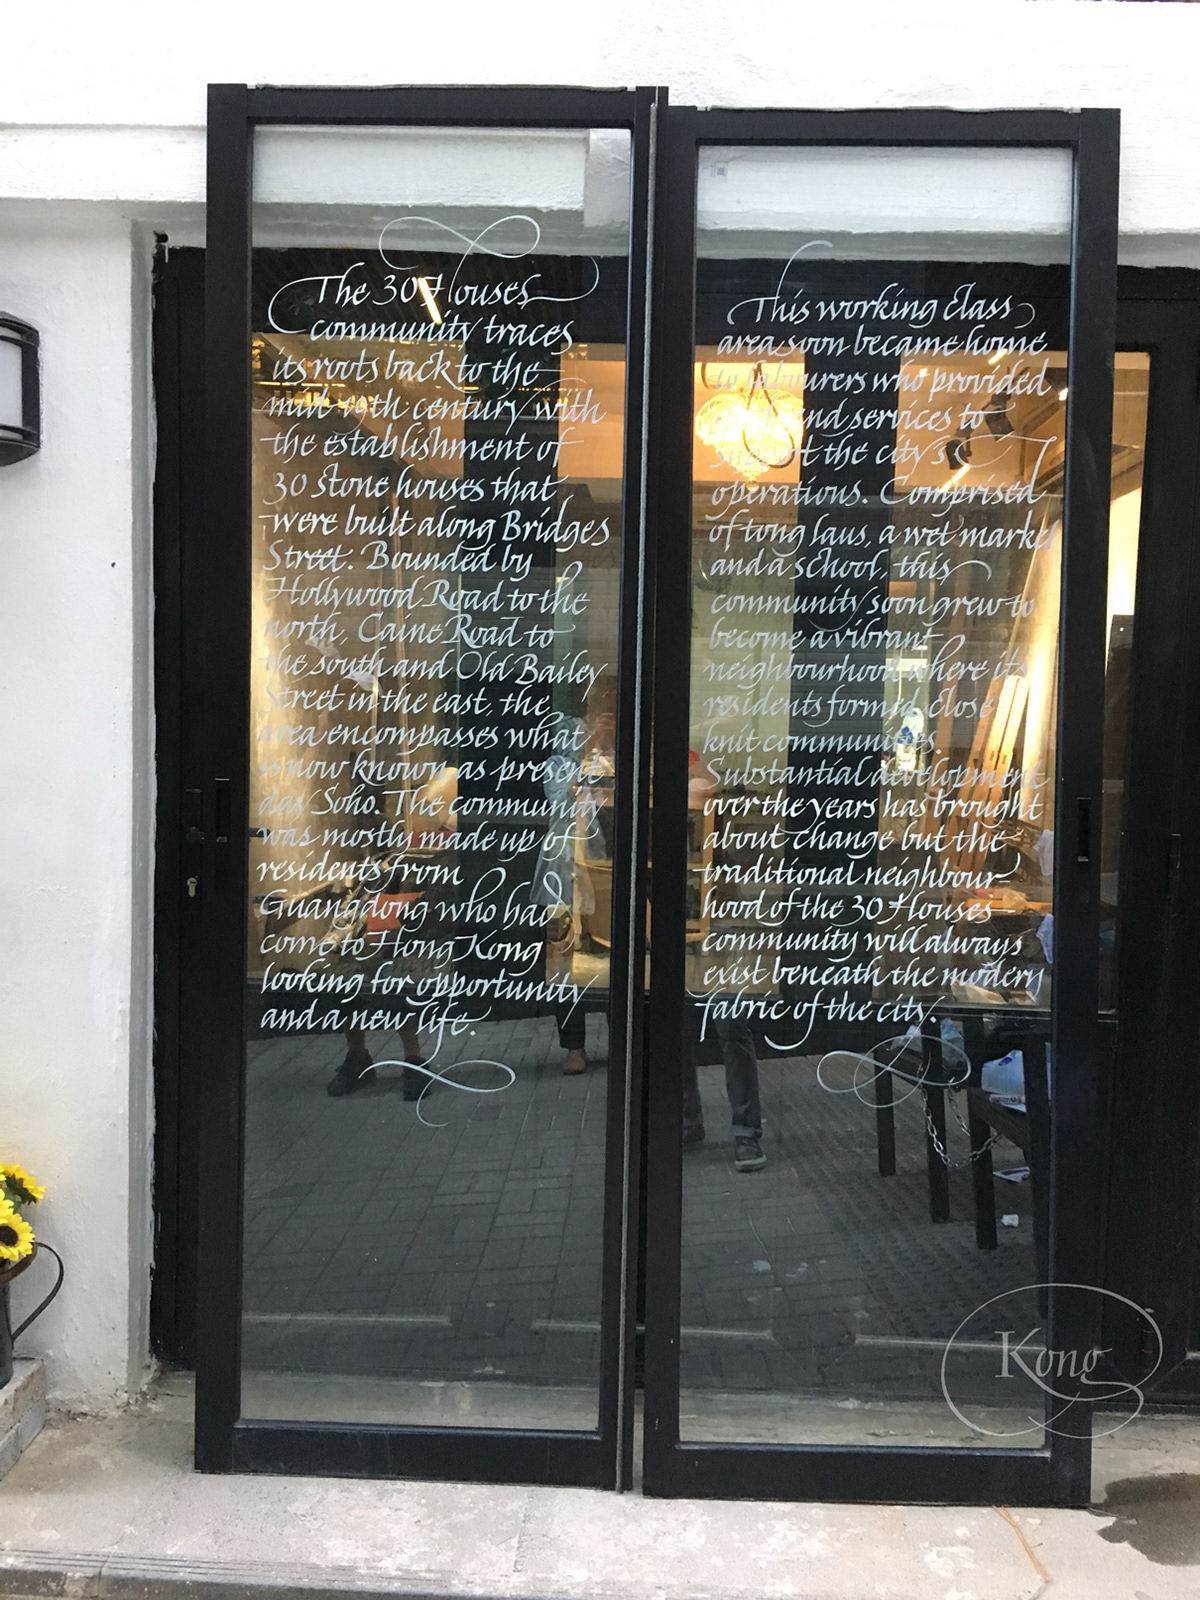 The 30 Houses
community traces
its roots back to the
mid 19th century with
the establishment of
30 stone houses that
were built along Bridges
Street. Bounded by
Hollywood Road to the
north, Caine Road to
the south and Old Bailey
Street in the east, the
area encompasses what
is now known as present
day Soho. The community
was mostly made up of
residents from
Guangdong who had
come to Hong Kong
looking for opportunity
and a new life.
This working class
area soon became home
to labourers who provided
and services to
support the city's
operations. Comprised
of tong laus, a wet market
and a school, this
community soon grew to
become a vibrant
neighbourhood where its
residents formed close
knit communities.
Substantial development
over the years has brought
about change but the
traditional neighbour-
hood of the 30 Houses
community will always
exist beneath the modern
fabric of the city.
Kong